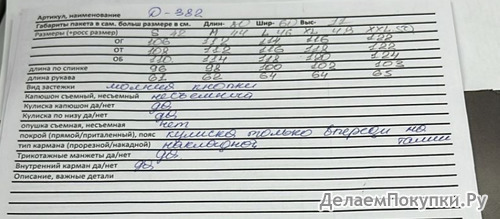 Артикул, наименование D-382
Габариты пакета в сам. больш размере в см. Длин- Шир- Выс-
Размеры (+росс размер) S 42 M 44 L 46 XL 48 XXL 50
ОГ 106 112 114 116 122
ОТ 108 112 116 118 122
ОБ 110 114 118 120 124
длина по спинке 96 98 100 102 103
длина рукава 61 62 64 64 65
Вид застежки молния кнопки
Капюшон съемный, несъемный несъемный
Кулиска капюшон да/нет да
Кулиска по низу да/нет да
опушка съемная, несъемная нет
покрой (прямой/приталенный), пояс кулиска только впереди на
талии
тип кармана (прорезной/накадной) накладной
Трикотажные манжеты да/нет да
Внутренний карман да/нет да
Описание, важные детали
ДелаемПокупки.Ру